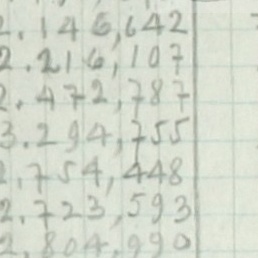 2.146,642
2.216,107
2.472,787
3.294,755
2.754,448
2.723,593
2.804,990